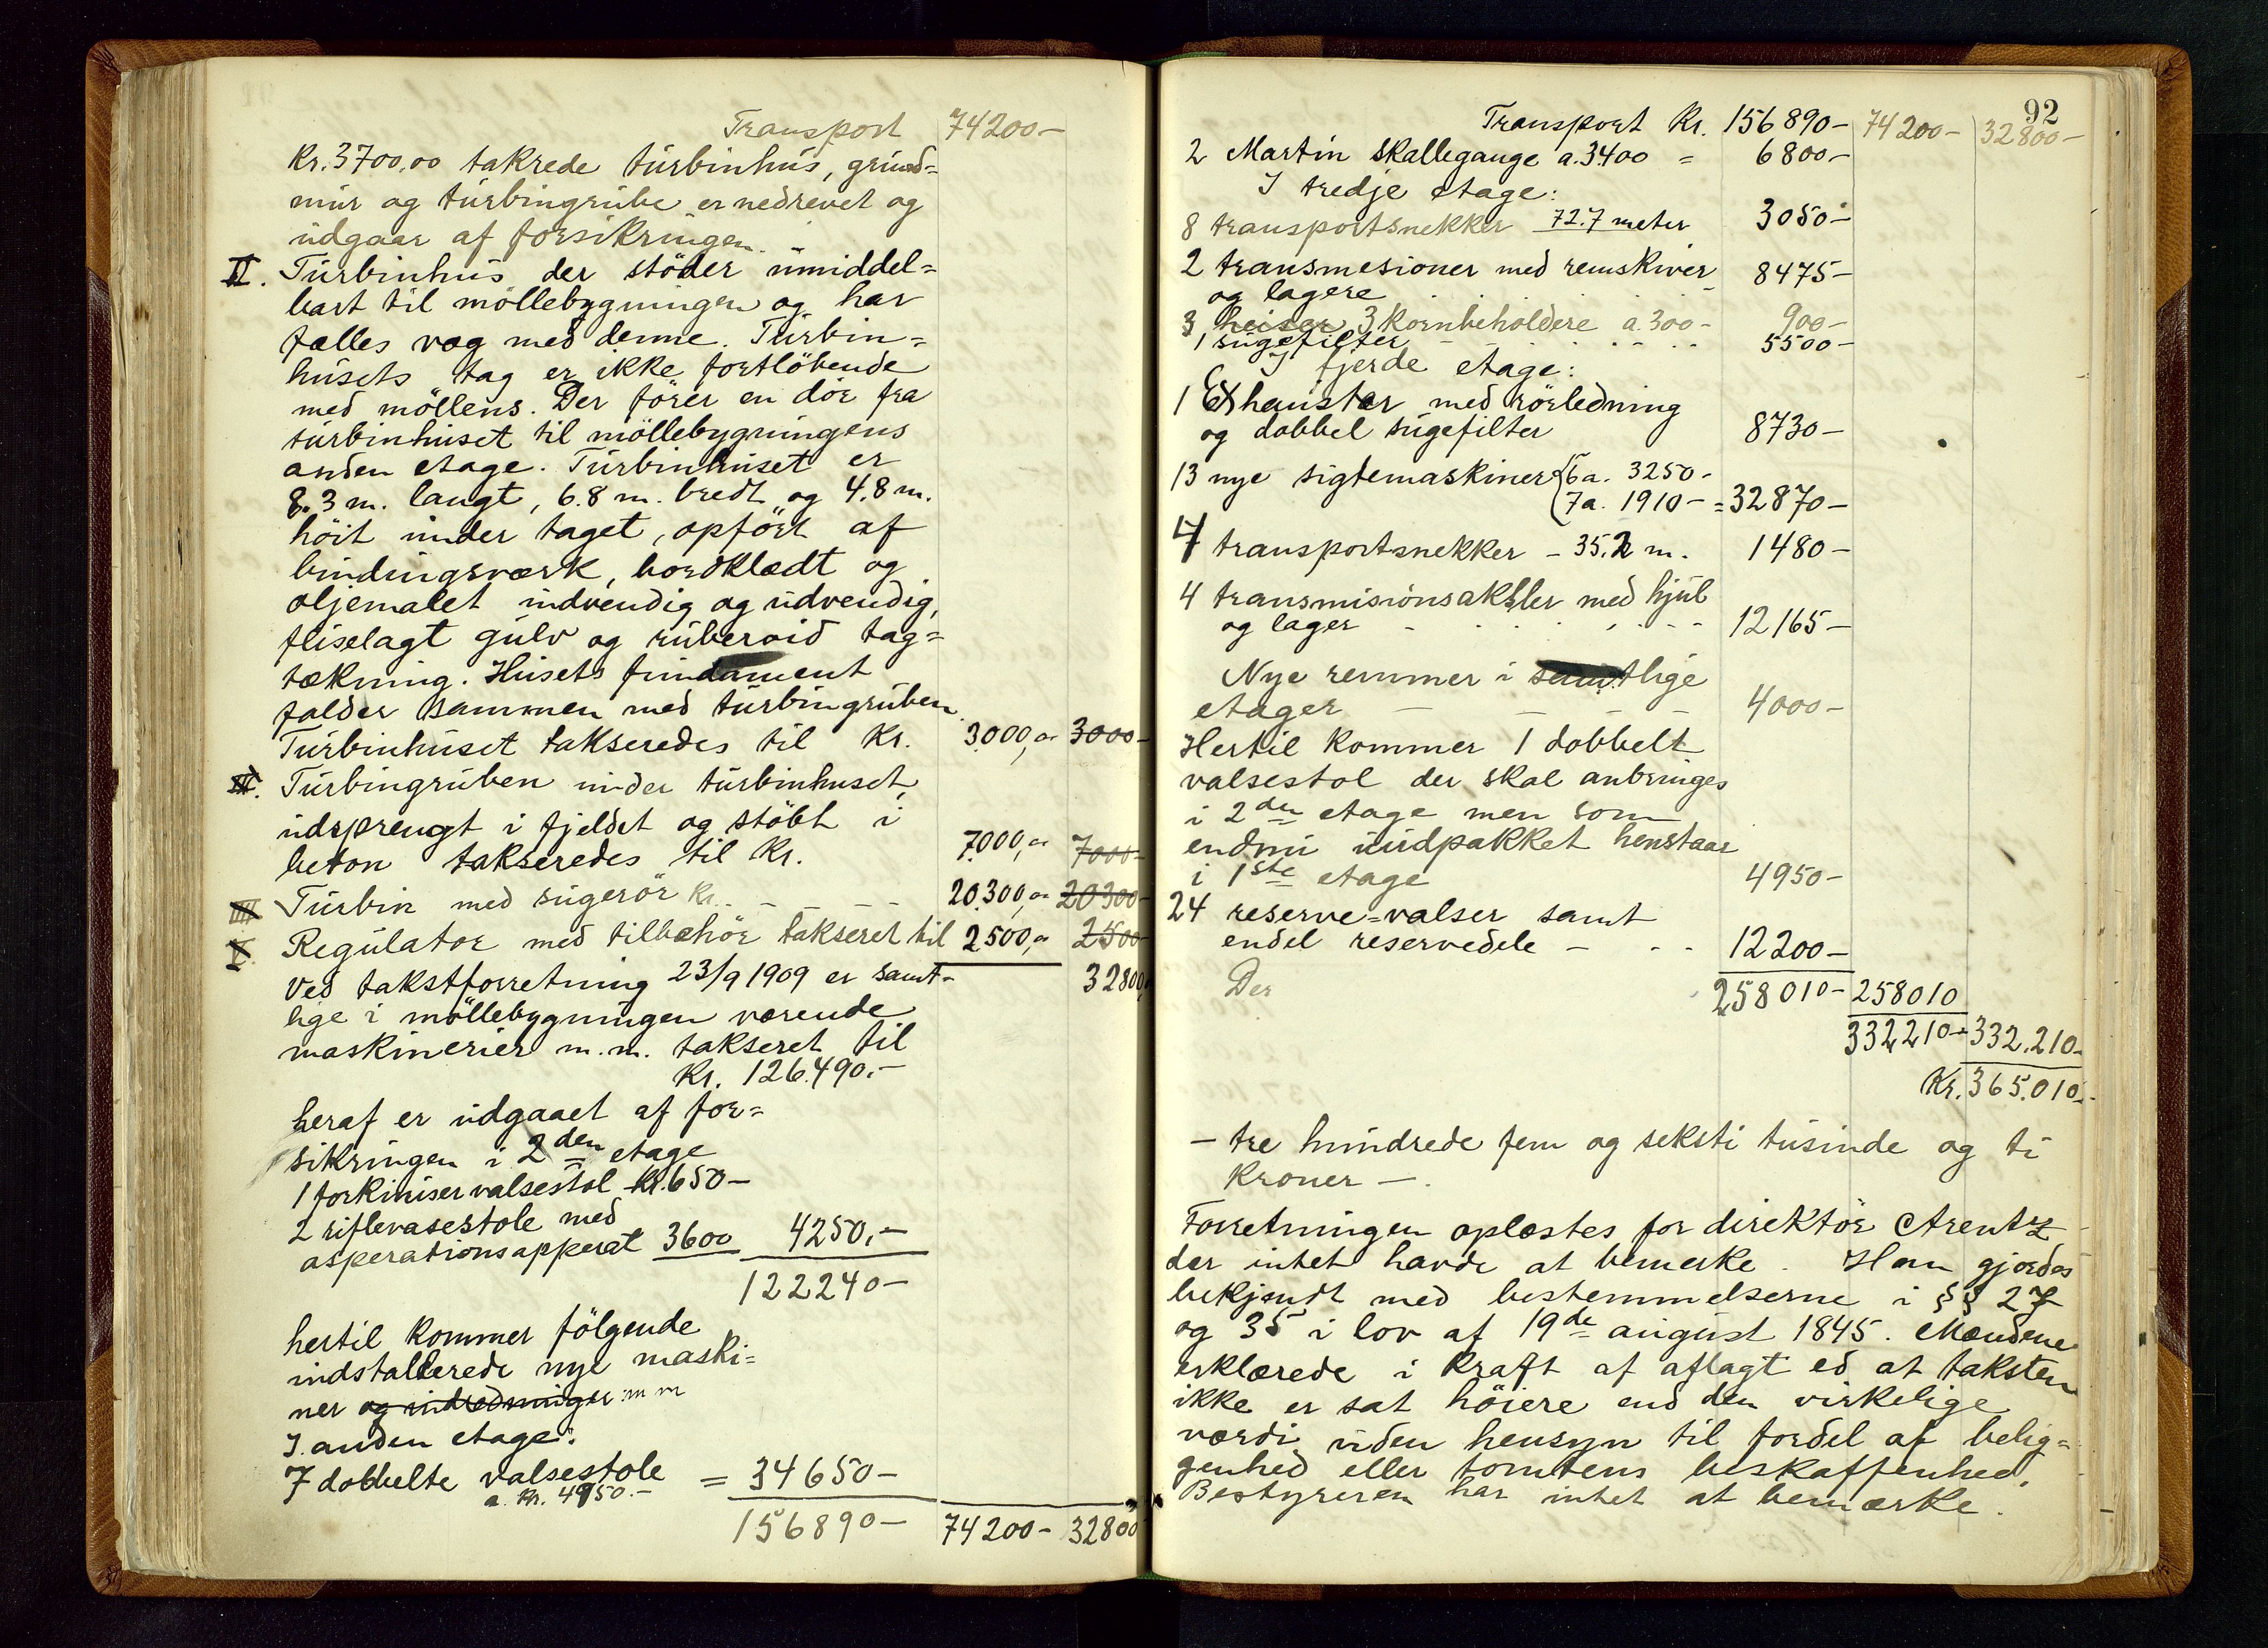 Transport 74200-
Kr. 3700,00 takrede turbinhus, grund=
mur og turbingrube er nedrevet og
udgaar af forsikringen.
II. Turbinhus der støder umiddel=
bart til møllebygningen og har
fælles væg med denne. Turbin=
husets tag er ikke fortløbende
med møllens. Der fører en dør fra
turbinhuset til møllebygningens
anden etage. Turbinhuset er
8.3 m. langt, 6.8 m. bredt og 4.8 m.
høit under taget, opført af
bindingsværk, bordklædt og
oljemalet indvendig og udvendig,
fliselagt gulv og ruberoid tag=
tækning. Husets fundament
falder sammen med turbingruben.
Turbinhuset takseredes til Kr. 3000,00 3000-
III. Turbingruben under turbinhuset,
udsprengt i fjeldet og støbt i
beton takseredes til Kr. 7.000,00 7000-
IIII Turbin med sugerør Kr. - - - - 20.300,00 20300-
V. Regulator med tilbehør takseret til 2500,00 2500-
Ved takstforretning 23/9 1909 er samt- 32800,
lige i møllebygningen værende
maskinerier m.m. takseret til
Kr. 126.490.-
heraf er udgaaet af for=
sikringen i 2den etage
1 forkiniser valsestol Kr. 650-
2 riflevasestole med
asperationsapperat 3600 4250.-
122240-
hertil kommer følgende
indstallerede nye maski=
ner og indredninger m m
I anden etage:
7 dobbelte valsestole = 34650-
a. Kr. 4950.-
156890- 74200- 32800
92
Transport Kr. 156890- 74200- 32800-
2 Martin skallegange a. 3400 = 6800-
I tredje etage:
8 transportsnekker 72.7 meter 3050-
2 transmesioner med remskiver 8475-
og lagere
3 heiser 3 kornbeholdere a. 300- 900-
1 sugefilter - - - - 5500-
I fjerde etage:
1 Exhauster med rørledning
og dobbel sugefilter 8730-
13 nye sigtemaskiner {6 a. 3250-
{7 a. 1910- = 32870-
4 transportsnekker - 35.2 m. 1480-
4 transmisionsaksler med hjul
og lager - - - - 12165-
Nye remmer i samtlige
etager - - - - 4000-
Hertil kommer 1 dobbelt
valsestol der skal anbringes
i 2den etage men som
endnu uudpakket henstaar
i 1ste etage 4950-
24 reserve=valser samt
endel reservedele - - - 12200-
Der 258010- 258010
332210- 332.210-
Kr. 365.010.-
- tre hundrede fem og seksti tusinde og ti
Kroner -.
Forretningen oplæstes for direktør Arentz
der intet havde at bemerke. Han gjordes
bekjendt med bestemmelserne i §§ 27
og 35 i lov af 19de august 1845. Mændene
erklærede i kraft af aflagt ed at taksten
ikke er sat høiere end den virkelige
værdi uden hensyn til fordel af belig=
genhed eller tomtens beskaffenhed.
Bestyreren har intet at bemærke.